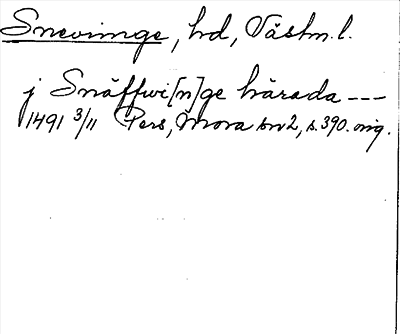 Snevringe, hd, Västm. l.
j Snäffwi[n]ge härada ---
1491 3/11 Pers, Mora sn 2, s. 390. orig.